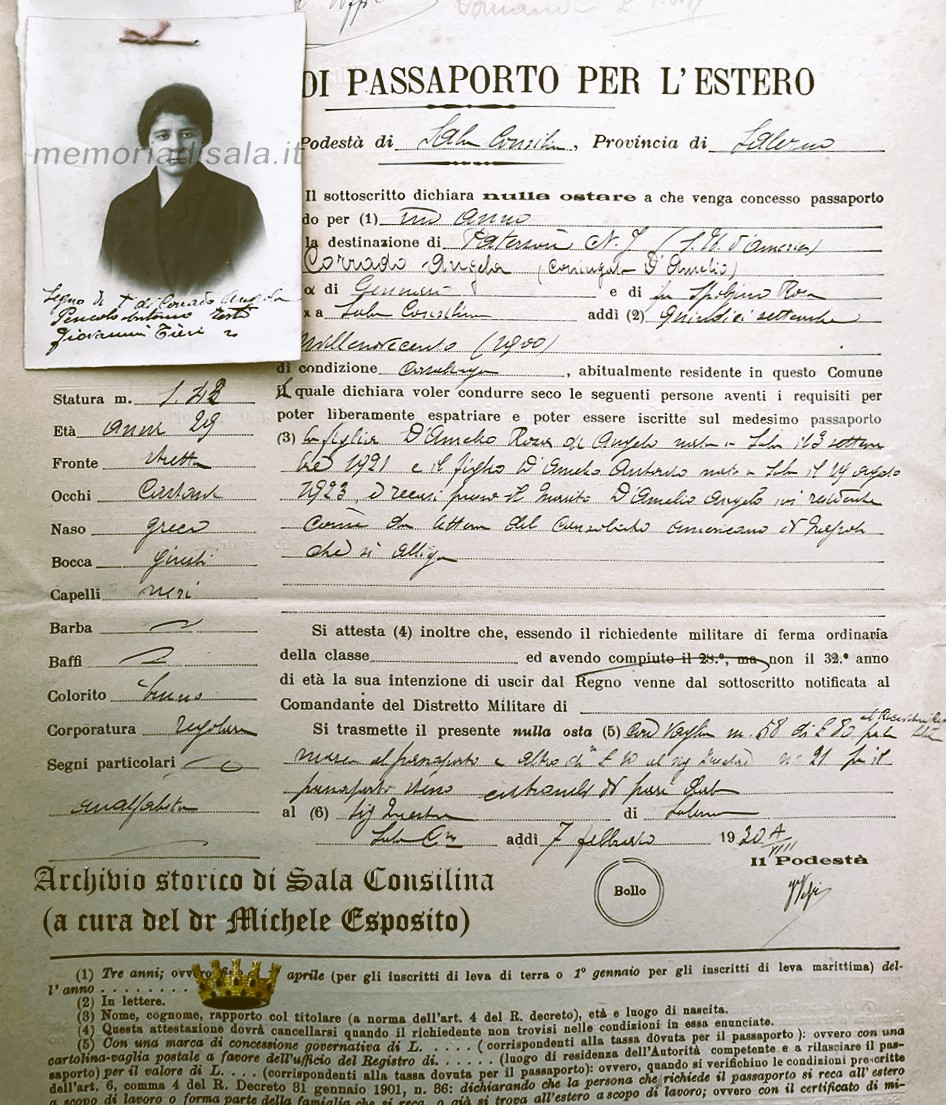 DI PASSAPORTO PER L'ESTERO
Podestà di Sala Consilina, Provincia di Salerno
memoriadisala.it
Il sottoscritto dichiara nulla ostare a che venga concesso passaporto
do per (1) un anno
la destinazione di Paterson N. J. (S. U. d'America)
Corrado Angela (coniugata D'Amelio)
a di Gennaro e di fu Spolzino Rosa
a a Sala Consilina addì (2) Quindici settembre
Millenovecento (1900)
di condizione casalinga, abitualmente residente in questo Comune
il quale dichiara voler condurre seco le seguenti persone aventi i requisiti per
poter liberamente espatriare e poter essere iscritte sul medesimo passaporto
(3) la figlia D'Amelio Rosa di Angelo nata a Sala il 3 settem
bre 1921 e il figlio D'Amelio Antonio nato a Sala il 14 agosto
1923, e recasi presso il marito D'Amelio Angelo ivi residente
come da lettera del Consolato americano di Napoli
che si alliga
Segno di + di Corrado Angela
Pencolo Antonio teste
Giovanni Tieri
Statura m. 1.42
Età anni 29
Fronte stretta
Occhi Castani
Naso greco
Bocca giusta
Capelli neri
Barba
Baffi
Colorito bruno
Corporatura regolare
Segni particolari
analfabeta
Si attesta (4) inoltre che, essendo il richiedente militare di ferma ordinaria
della classe ed avendo compiuto il 28.º, ma non il 32.º anno
di età la sua intenzione di uscir dal Regno venne dal sottoscritto notificata al
Comandante del Distretto Militare di
Si trasmette il presente nulla osta (5) con Vaglia n. 58 di £ 80 per la
marca al passaporto e altro di £ 10 al sig Questore n° 21 per il
passaporto stesso entrambi di pari data
al (6) Sig Questore di Salerno
Sala Cna addì 7 febbraio 1930 A VIII
Il Podestà
Bollo
Archivio storico di Sala Consilina
(a cura del dr Michele Esposito)
(1) Tre anni; ovvero aprile (per gli inscritti di leva di terra o 1º gennaio per gli inscritti di leva marittima) del-
l'anno . . . . . . . .
(2) In lettere.
(3) Nome, cognome, rapporto col titolare (a norma dell'art. 4 del R. decreto), età e luogo di nascita.
(4) Questa attestazione dovrà cancellarsi quando il richiedente non trovisi nelle condizioni in essa enunciate.
(5) Con una marca di concessione governativa di L. . . . . (corrispondenti alla tassa dovuta per il passaporto): ovvero con una
cartolina-vaglia postale a favore dell'ufficio del Registro di. . . . . . (luogo di residenza dell'Autorità competente e a rilasciare il pas-
saporto) per il valore di L. . . . (corrispondenti alla tassa dovuta per il passaporto): ovvero, quando si verifichino le condizioni prescritte
dell'art. 6, comma 4 del R. Decreto 31 gennaio 1901, n. 36: dichiarando che la persona che richiede il passaporto si reca all'estero
a scopo di lavoro o forma parte della famiglia che si reca, o già si trova all'estero a scopo di lavoro; ovvero con il certificato di mi-